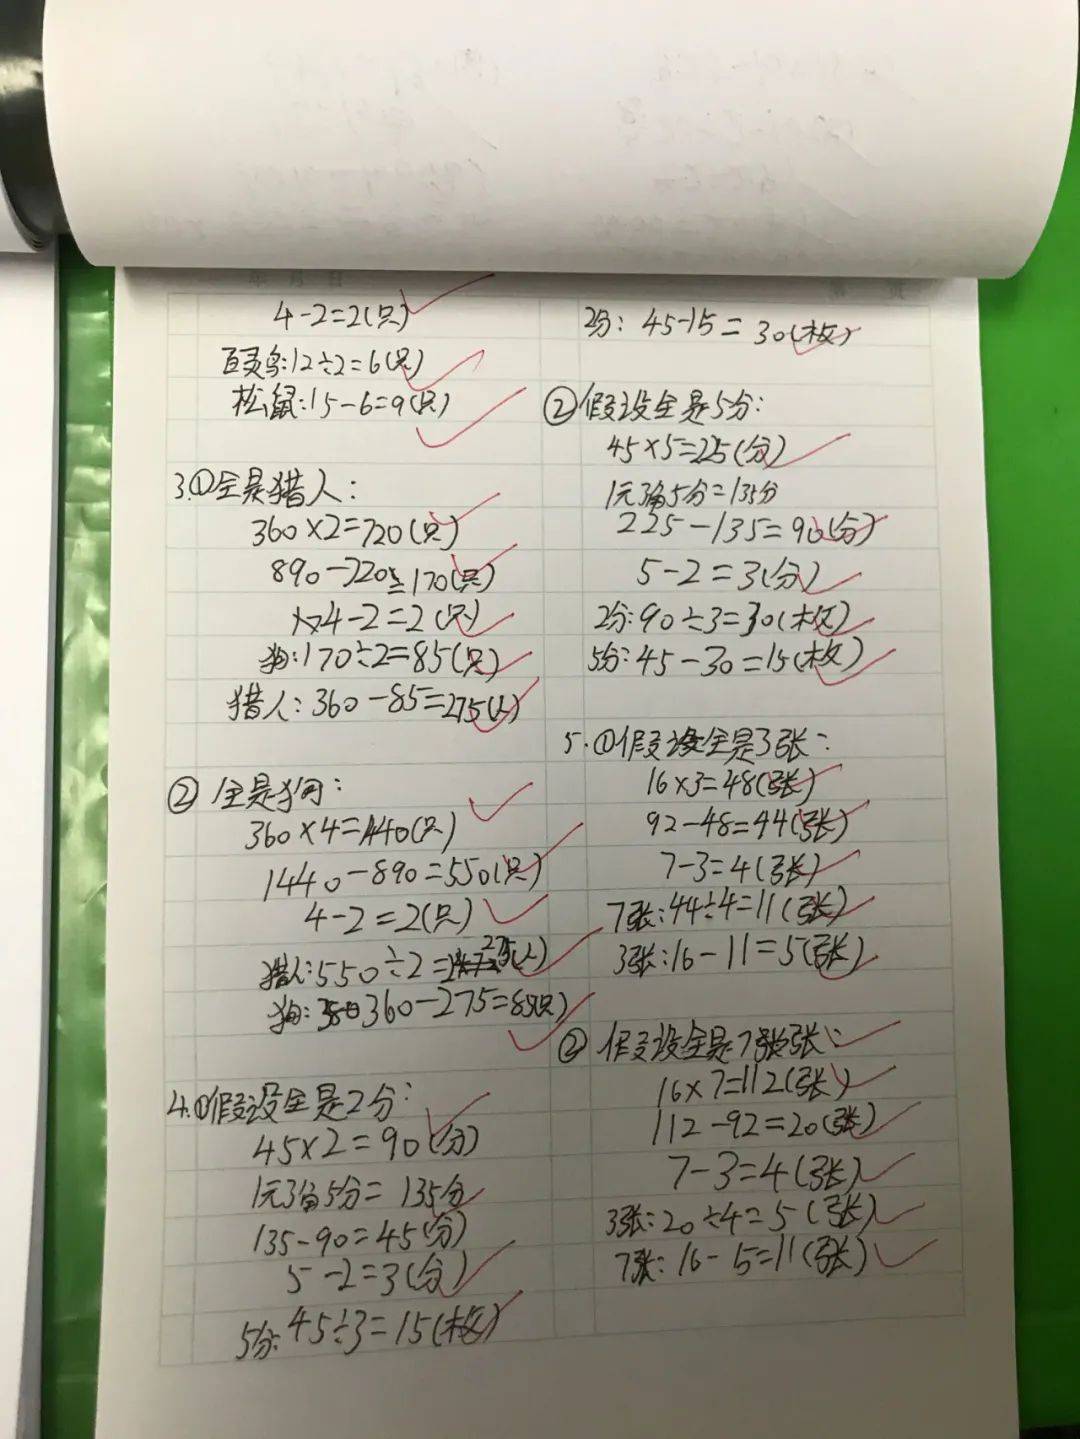 年 月 日
第 页
4-2=2(只)
百灵鸟:12÷2=6(只)
松鼠:15-6=9(只)
3.①全是猎人:
360×2=720(只)
890-720=170(只)
4-2=2(只)
狗:170÷2=85(只)
猎人:360-85=275(人)
② 全是狗:
360×4=1440(只)
1440-890=550(只)
4-2=2(只)
猎人:550÷2=275(人)
狗:360-275=85(只)
4.①假设全是2分:
45×2=90(分)
1元3角5分=135分
135-90=45(分)
5-2=3(分)
5分:45÷3=15(枚)
2分:45-15=30(枚)
②假设全是5分:
45×5=225(分)
1元3角5分=135分
225-135=90(分)
5-2=3(分)
2分:90÷3=30(枚)
5分:45-30=15(枚)
5.①假设全是3张:
16×3=48(张)
92-48=44(张)
7-3=4(张)
7张:44÷4=11(张)
3张:16-11=5(张)
② 假设全是7张:
16×7=112(张)
112-92=20(张)
7-3=4(张)
3张:20÷4=5(张)
7张:16-5=11(张)